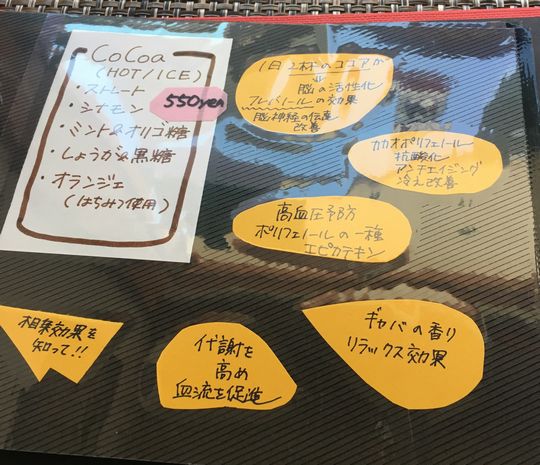 CoCoa
(HOT/ICE)
・ストレート
・シナモン
550yen
・ミント&オリゴ糖
・しょうが&黒糖
・オランジェ
(はちみつ使用)
1日2杯のココアが
脳の活性化
フレバノールの効果
脳神経の伝達
改善
カカオポリフェノール
抗酸化
アンチエイジング
冷え改善
高血圧予防
ポリフェノールの一種
エピカテキン
相乗効果を
知って!!
代謝を
高め
血流を促進
ギャバの香り
リラックス効果